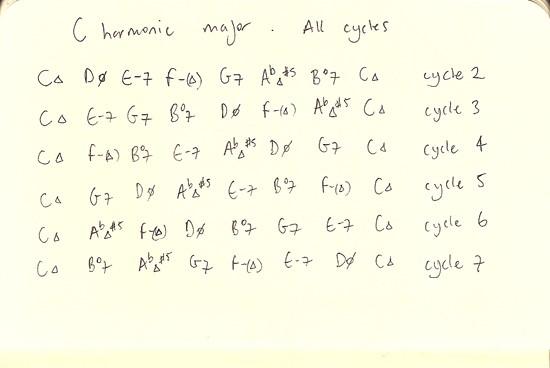 C harmonic major. All cycles
C∆ Dø E-7 F-(∆) G7 Ab∆#5 Bo7 C∆ cycle 2
C∆ E-7 G7 Bo7 Dø F-(∆) Ab∆#5 C∆ cycle 3
C∆ F-(∆) Bo7 E-7 Ab∆#5 Dø G7 C∆ cycle 4
C∆ G7 Dø Ab∆#5 E-7 Bo7 F-(∆) C∆ cycle 5
C∆ Ab∆#5 F-(∆) Dø Bo7 G7 E-7 C∆ cycle 6
C∆ Bo7 Ab∆#5 G7 F-(∆) E-7 Dø C∆ cycle 7